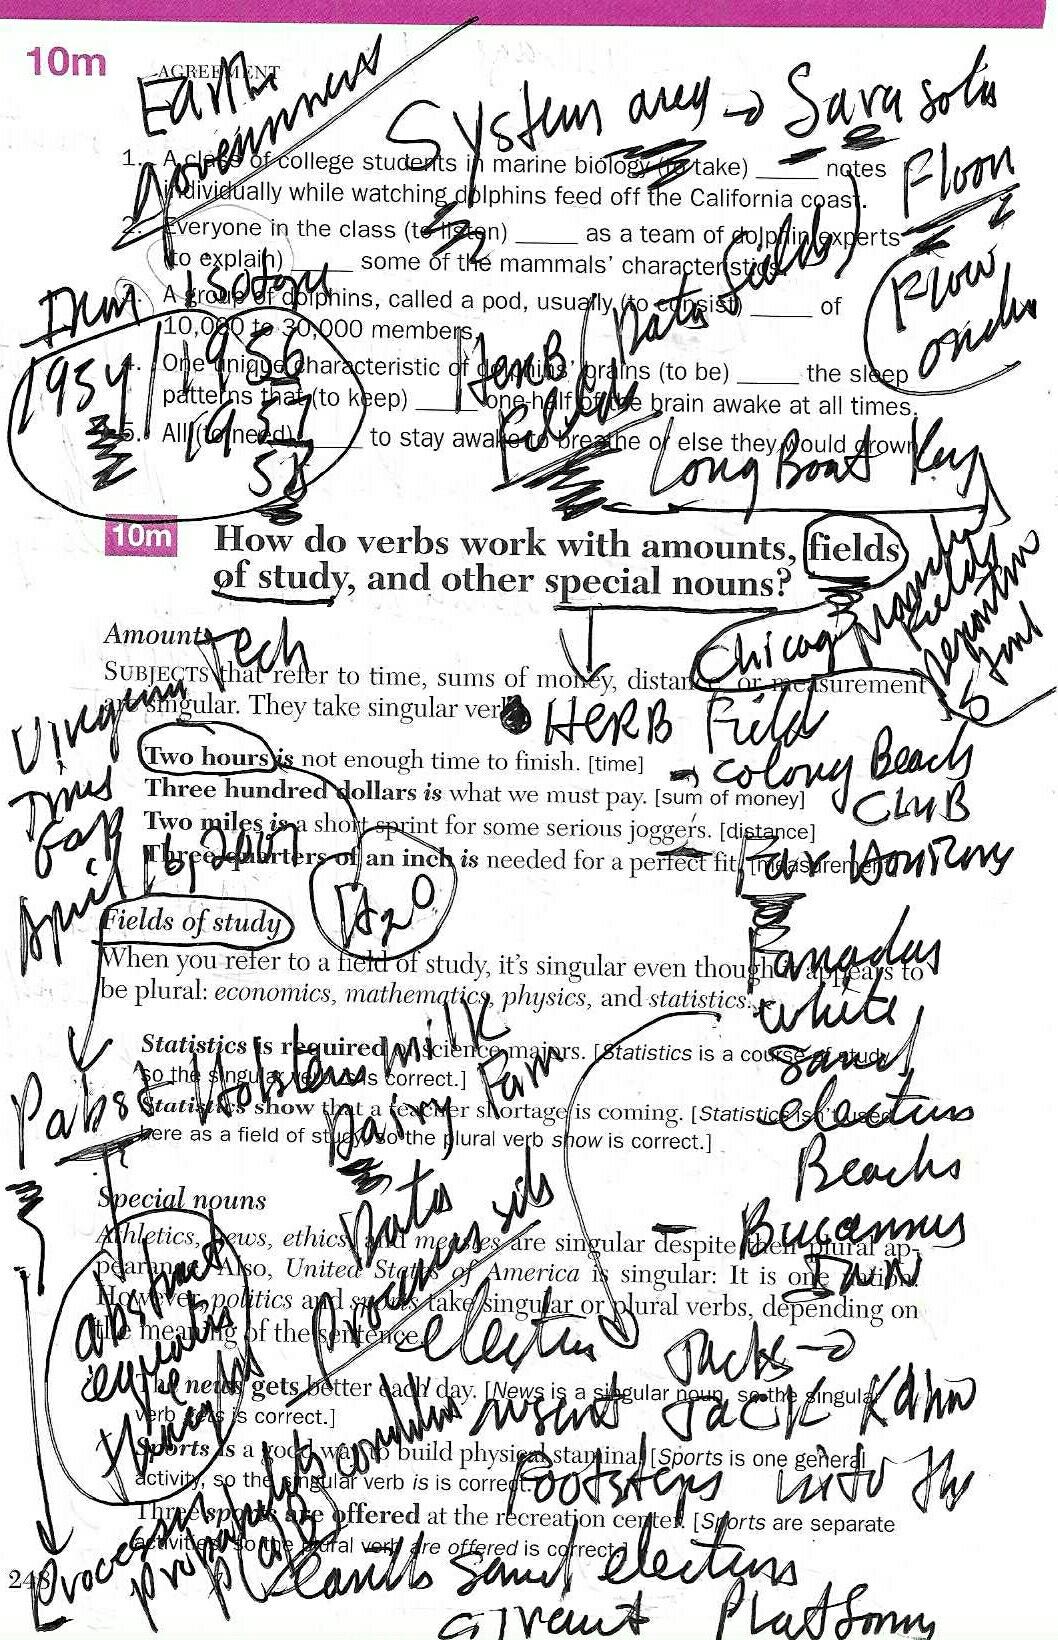 10m
AGREEMENT
Earth
Government
System area → Sarasota
1. A class of college students in marine biology (to take) _____ notes
individually while watching dolphins feed off the California coast.
2. Everyone in the class (to listen) _____ as a team of dolphin experts
(to explain) _____ some of the mammals' characteristics.
3. A group of dolphins, called a pod, usually (to consist) _____ of
10,000 to 30,000 members.
4. One unique characteristic of dolphins' brains (to be) _____ the sleep
patterns that (to keep) _____ one-half of the brain awake at all times.
5. All (to need) _____ to stay awake to breathe or else they would drown.
Isotope
1954 1956
1957
58
Herb (Data Fields)
Fields
Floor
Flow
Long Boat Key
10m How do verbs work with amounts, fields
of study, and other special nouns?
Chicago
Amounts
Tech
SUBJECTS that refer to time, sums of money, distance, or measurement
are singular. They take singular verbs.
HERB Field
Two hours is not enough time to finish. [time]
Three hundred dollars is what we must pay. [sum of money]
Two miles is a short sprint for some serious joggers. [distance]
Three-quarters of an inch is needed for a perfect fit. [measurement]
Virginia
Times
April 16, 2007
H2O
Colony Beach
CLUB
Far Horizons
Fields of study
When you refer to a field of study, it's singular even though it appears to
be plural: economics, mathematics, physics, and statistics.
Statistics is required of science majors. [Statistics is a course of study,
so the singular verb is is correct.]
Statistics show that a teacher shortage is coming. [Statistics isn't used
here as a field of study, so the plural verb show is correct.]
Pabst Holstein milk
Dairy Farm
white
sand
electrons
Beachs
Special nouns
Athletics, news, ethics, and measles are singular despite their plural ap-
pearance. Also, United States of America is singular: It is one nation.
However, politics and sports take singular or plural verbs, depending on
the meaning of the sentence.
Data
Process
abstract
equals
Henry
electron
Jacks →
The news gets better each day. [News is a singular noun, so the singular
verb gets is correct.]
Sports is a good way to build physical stamina. [Sports is one general
activity, so the singular verb is is correct.]
Three sports are offered at the recreation center. [Sports are separate
activities, so the plural verb are offered is correct.]
Jack Kahn
Footsteps into the
Process
sand electrons
circuit Platforms
248